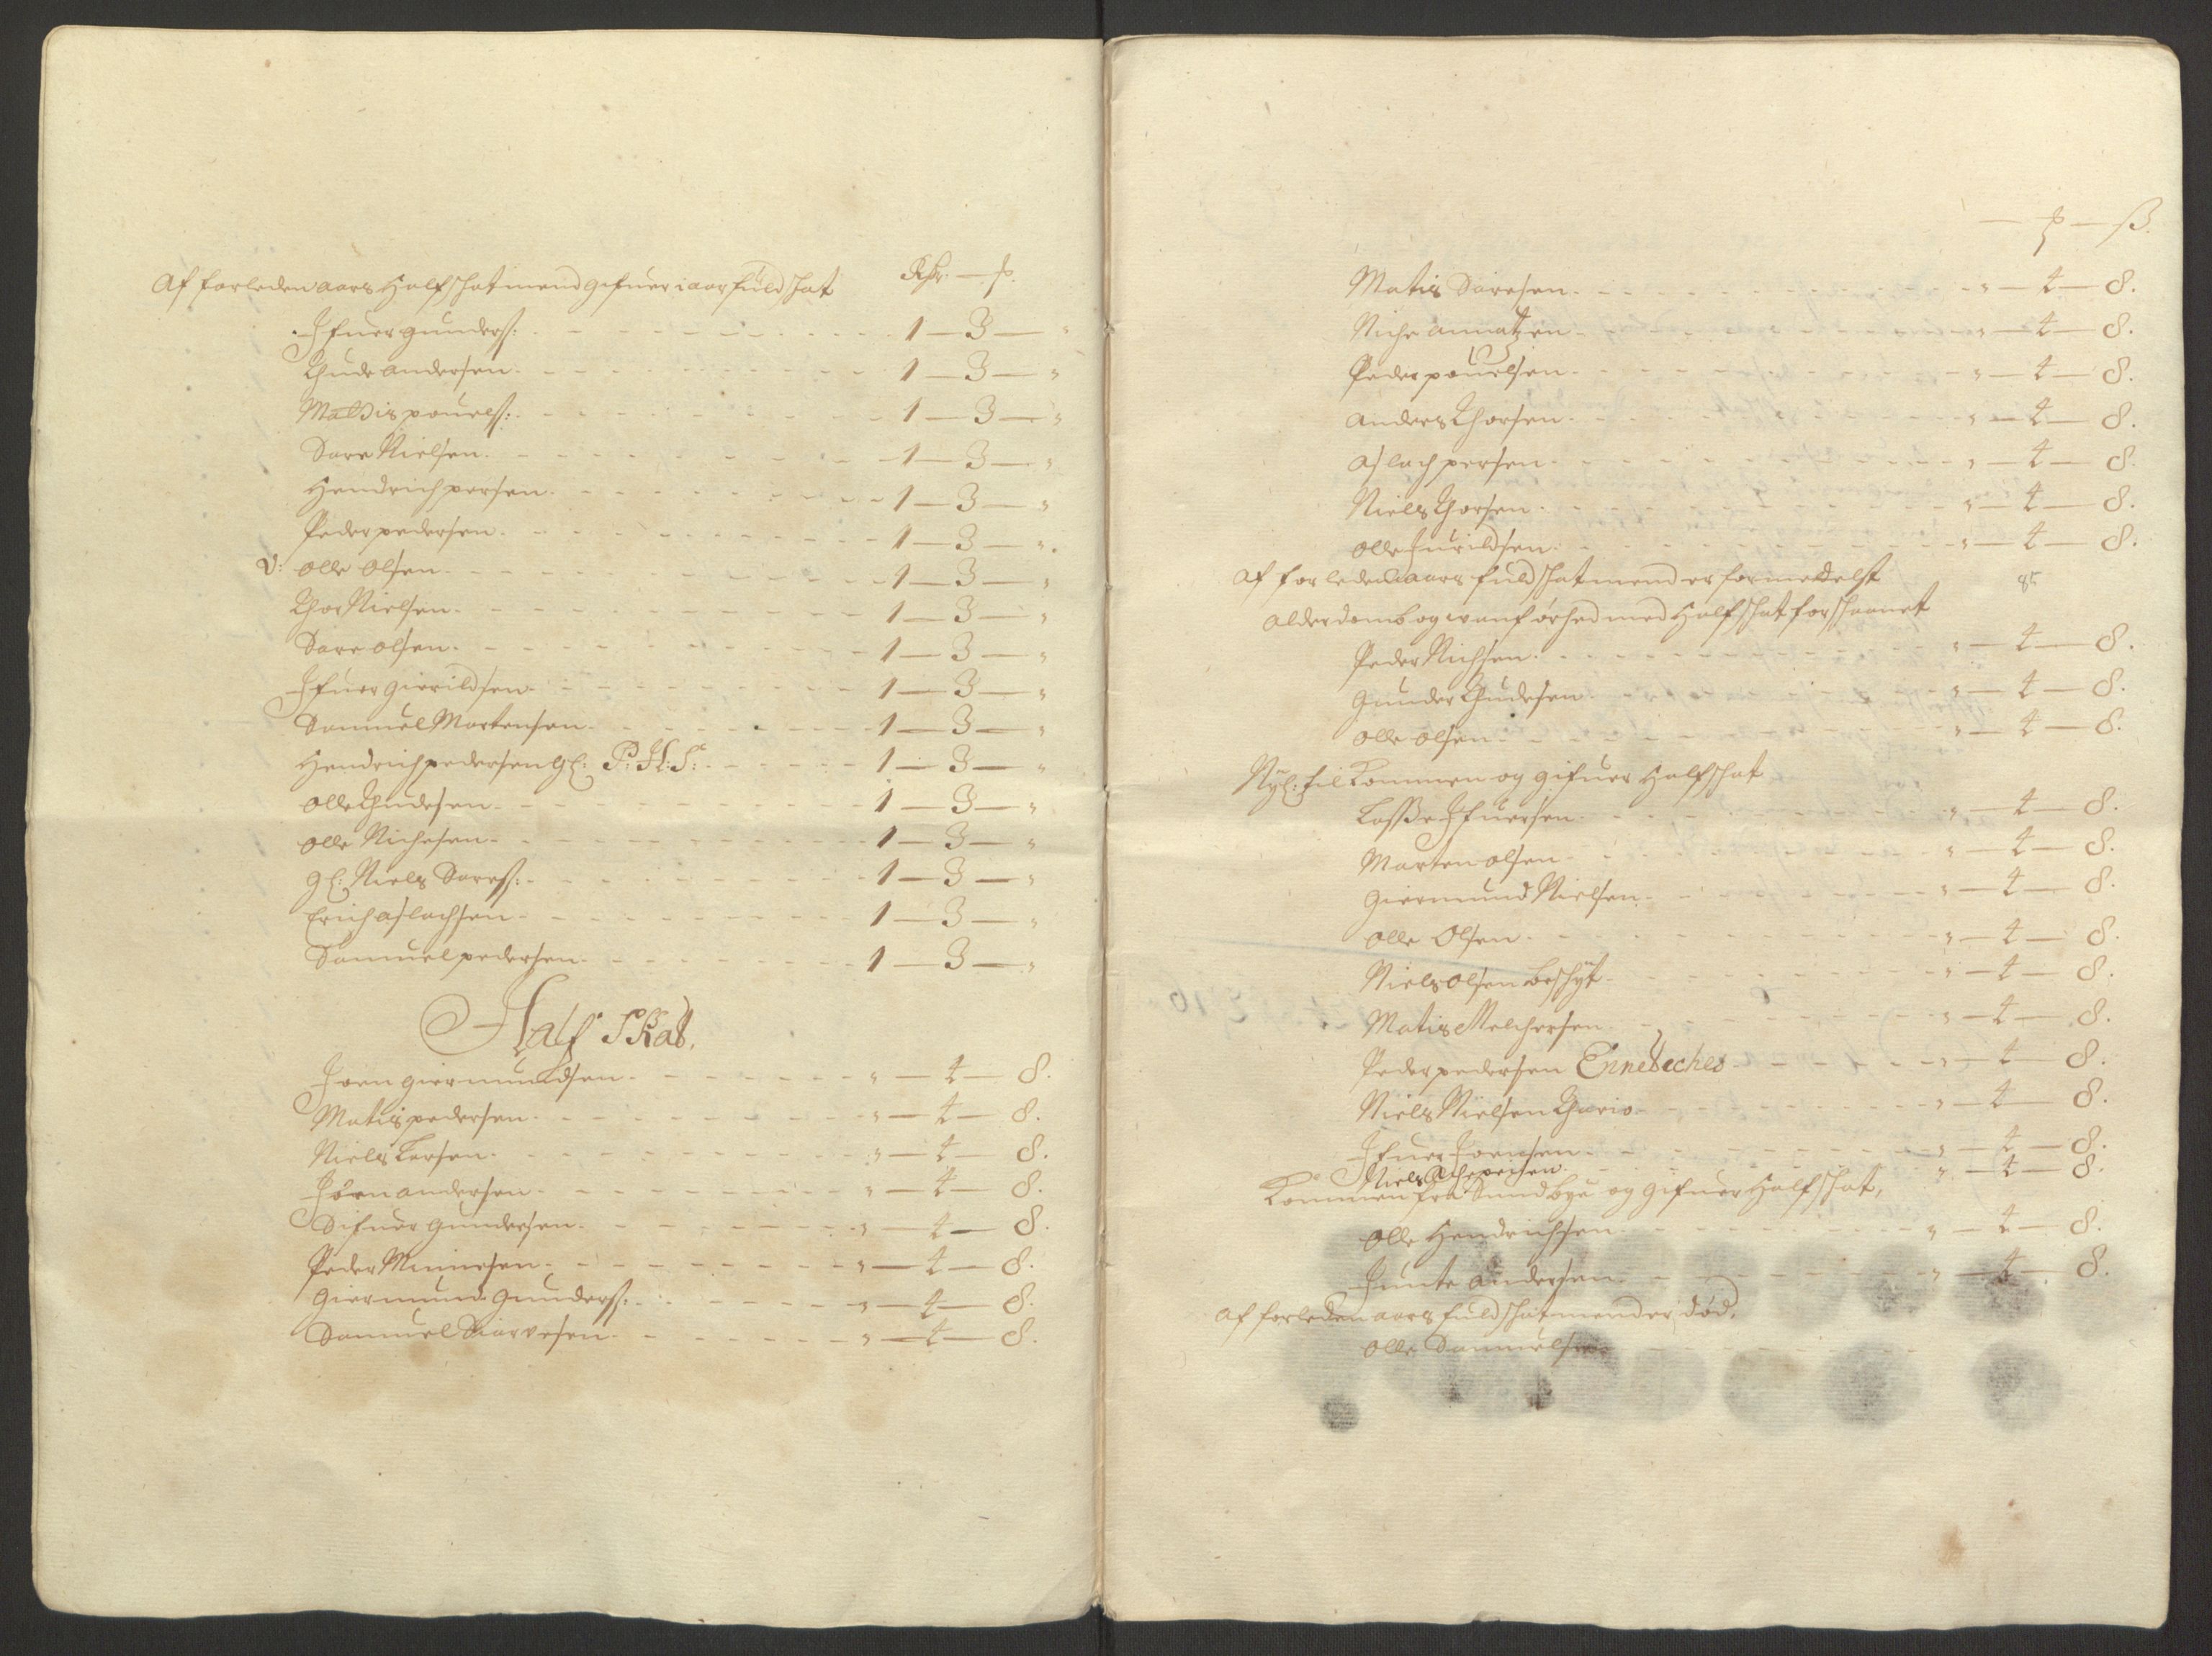 Af forleden aars Half schatmend gifuer i aar fuld schat Rdr. — ƒ.
Ifuer gunders: 1 — 3 — "
Chude andersen 1 — 3 — "
Mattis pouels: 1 — 3 — "
Sare Nielsen 1 — 3 — "
Hendrich persen 1 — 3 — "
Peder pedersen 1 — 3 — "
V: olle olsen 1 — 3 — "
Thor Nielsen 1 — 3 — "
Sare olsen 1 — 3 — "
Ifuer gierildsen 1 — 3 — "
Samuel Mortensen 1 — 3 — "
Hendrich pedersen gl: P: H: S: 1 — 3 — "
olle Chudesen 1 — 3 — "
olle Nichesen 1 — 3 — "
gl: Niels Sares: 1 — 3 — "
Erich aslachsen 1 — 3 — "
Samuel pedersen 1 — 3 — "
Half Skat.
Joen giermundsen " — 4 — 8.
Matis pedersen " — 4 — 8.
Niels Larsen " — 4 — 8.
Jørn andersen " — 4 — 8.
Sifuer gundersen " — 4 — 8.
Peder Munesen " — 4 — 8.
giermund gunders: " — 4 — 8.
Samuel Siarvesen " — 4 — 8.
— ƒ — ß.
Matis Saresen " — 4 — 8.
Niche annatzen " — 4 — 8.
Peder pouelsen " — 4 — 8.
anders Thorsen " — 4 — 8.
aslach persen " — 4 — 8.
Niels Thorsen " — 4 — 8.
olle Jurildsen " — 4 — 8.
af forleden aars fuld schatmend er formedelst
alderdomb og wanførhed med Half schat forschaanet
Peder Nichsen " — 4 — 8.
gunder Chudesen " — 4 — 8.
olle olsen " — 4 — 8.
Nyl: til Kommen og gifuer Half schat
Lasße Ifuersen " — 4 — 8.
Morten olsen " — 4 — 8.
giermund Nielsen " — 4 — 8.
olle Olsen " — 4 — 8.
Niels olsen beschyt " — 4 — 8.
Matis Melchersen " — 4 — 8.
Peder pedersen Ennebeches " — 4 — 8.
Niels Nielsen Thario " — 4 — 8.
Ifuer Joensen " — 4 — 8.
Niels Achepersen " — 4 — 8.
Kommen fra Sundbye og gifuer Half schat,
olle Hendrichsen " — 4 — 8.
Junte andersen " — 4 — 8.
af forleden aars fuld schatmend er død,
olle Samuelsen